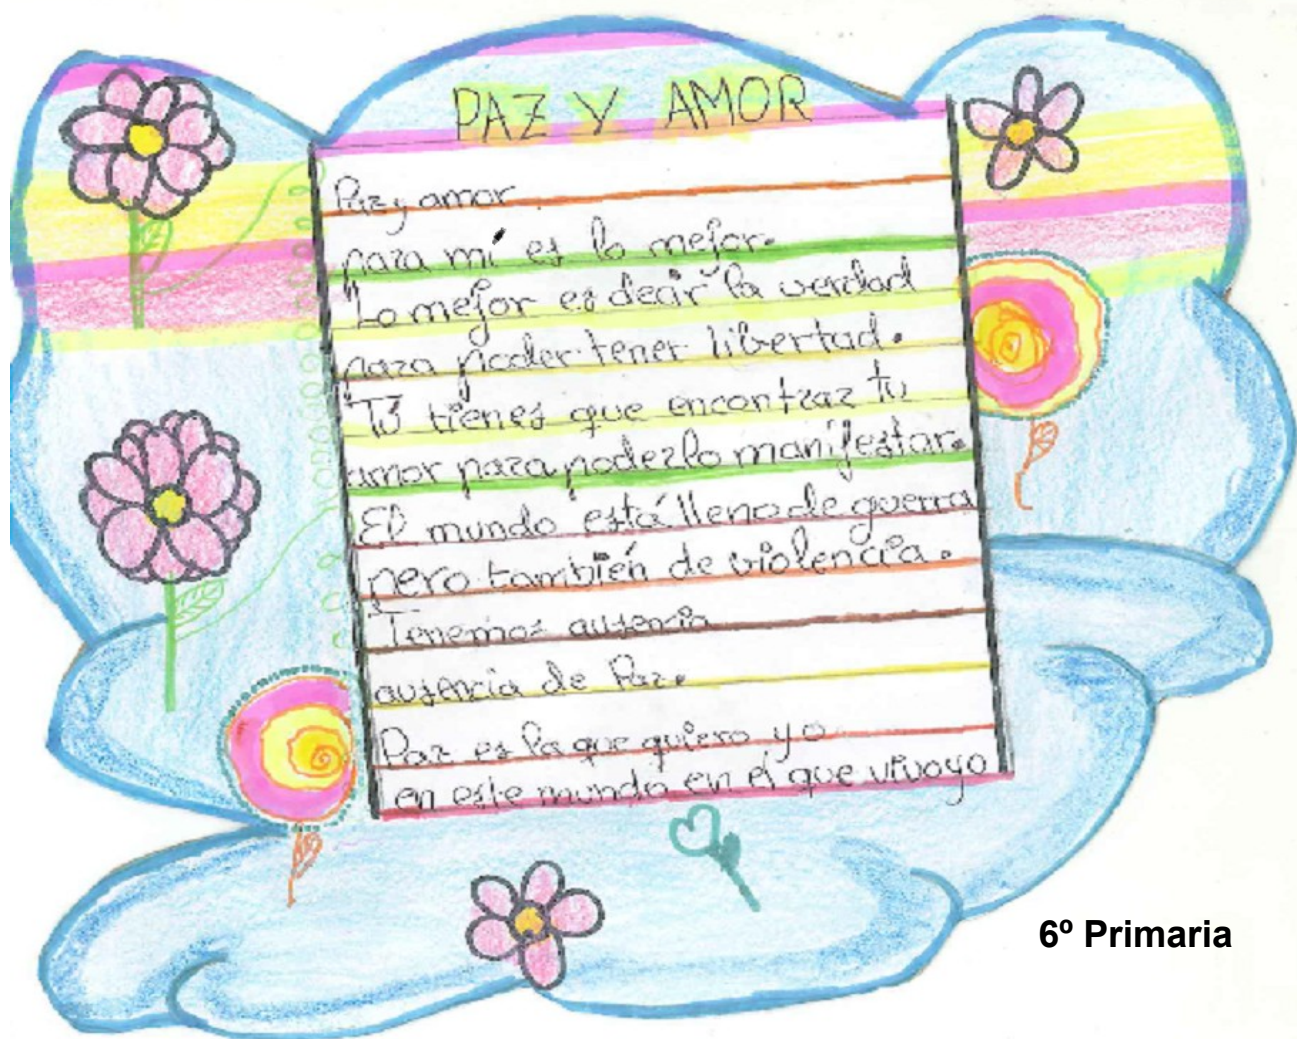 PAZ Y AMOR
Paz y amor
para mí es lo mejor.
Lo mejor es decir la verdad
para poder tener libertad.
Tú tienes que encontrar tu
amor para poderlo manifestar.
El mundo está lleno de guerra
pero también de violencia.
Tenemos ausencia
ausencia de Paz.
Paz es la que quiero yo
en este mundo en el que vivo yo
6º Primaria